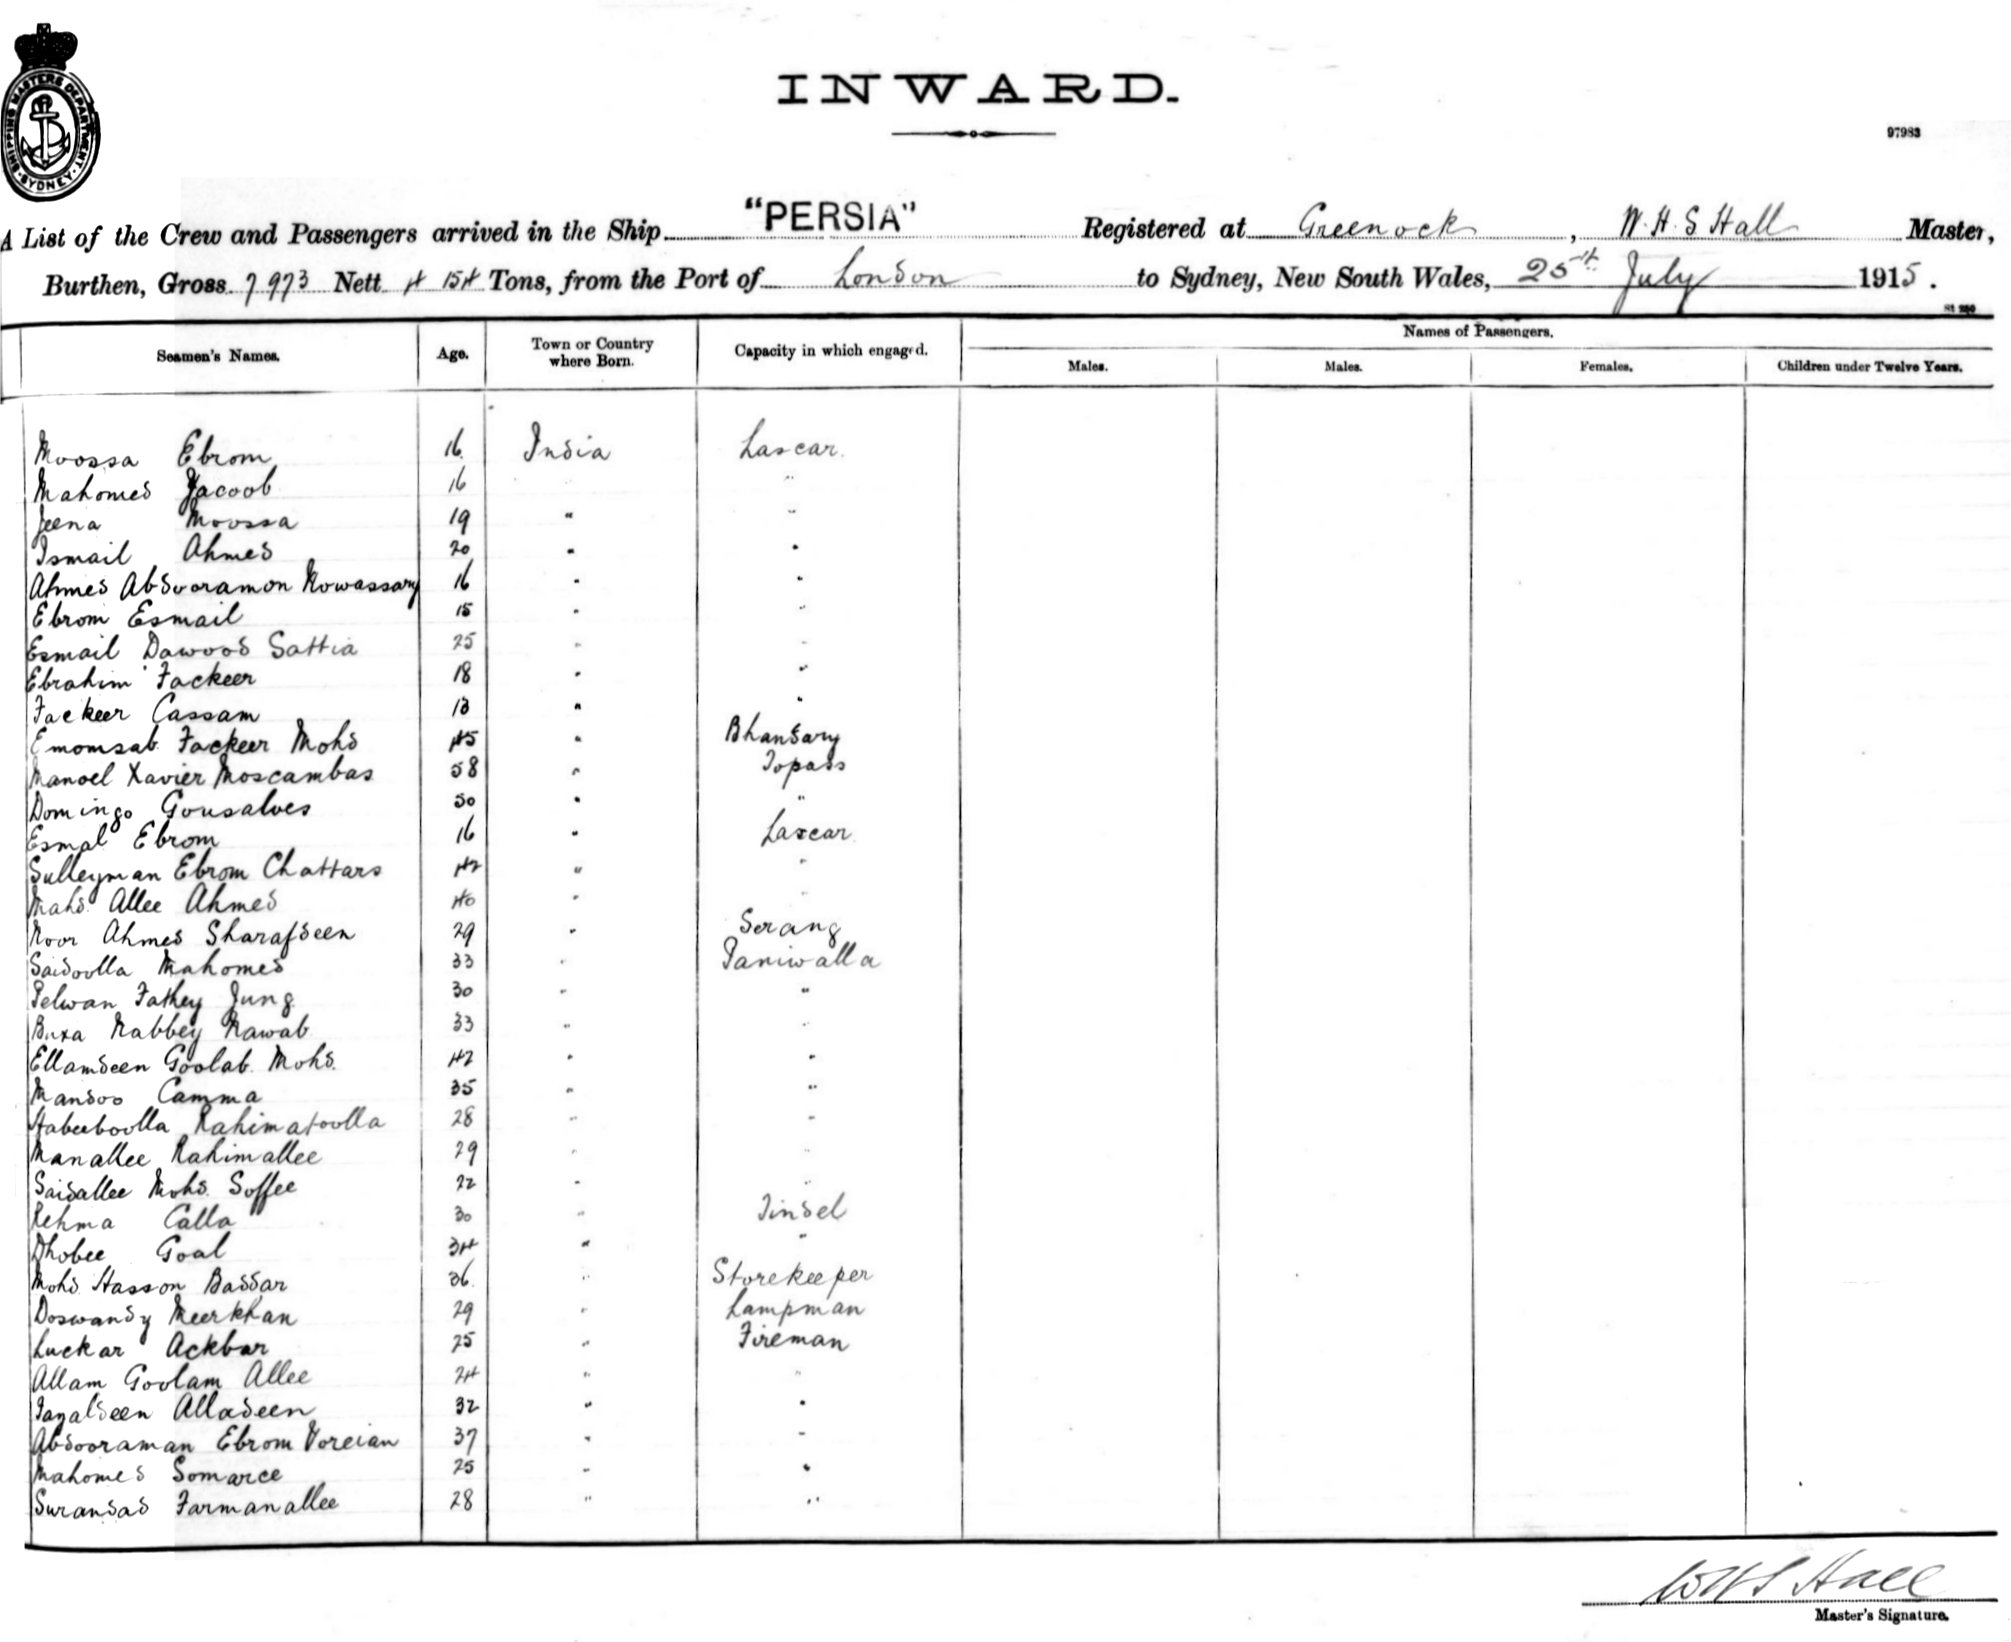 INWARD.
97983
SHIPPING MASTERS DEPARTMENT
SYDNEY
A List of the Crew and Passengers arrived in the Ship "PERSIA" Registered at Greenock, W. H. S Hall Master,
Burthen, Gross 7973 Nett 4154 Tons, from the Port of London to Sydney, New South Wales, 25th July 1915.
Seamen's Names. Age. Town or Country where Born. Capacity in which engaged. Names of Passengers.
Males. Males. Females. Children under Twelve Years.
Moossa Ebrom 16 India Lascar.
Mahomed Yacoob 16 " "
Jeena Moossa 19 " "
Ismail Ahmed 20 " "
Ahmed Abdooramon Nowassany 16 " "
Ebrom Esmail 15 " "
Esmail Dawood Sattia 25 " "
Ebrahim Fackeer 18 " "
Fackeer Cassam 18 " "
Emomsab Fackeer Mohd 45 " Bhandary
Manoel Xavier Moscambas 58 " Topass
Domingo Gonsalves 50 " "
Esmal Ebrom 16 " Lascar.
Sulleyman Ebrom Chattars 42 " "
Mahd. Allee Ahmed 40 " "
Noor Ahmed Sharafdeen 29 " Serang
Saidoolla Mahomed 33 " Paniwalla
Pelwan Fathey Jung 30 " "
Buxa Nabbey Nawab 33 " "
Ellamdeen Goolab Mohd. 42 " "
Mandoo Camma 35 " "
Habeeboolla Rahimatoolla 28 " "
Manallee Rahimallee 29 " "
Saidallee Mohd. Soffee 22 " "
Rehma Calla 30 " Tindel
Dhobee Goal 34 " "
Mohd. Hasson Baddar 36. " Storekeeper
Doswandy Meerkhan 29 " Lampman
Luckar Ackbar 25 " Fireman
Allam Goolam Allee 24 " "
Fazaldeen Alladeen 32 " "
Abdooraman Ebrom Voreian 37 " "
Mahomed Somarce 25 " "
Surandad Farmanallee 28 " "
W H S Hall
Master's Signature.